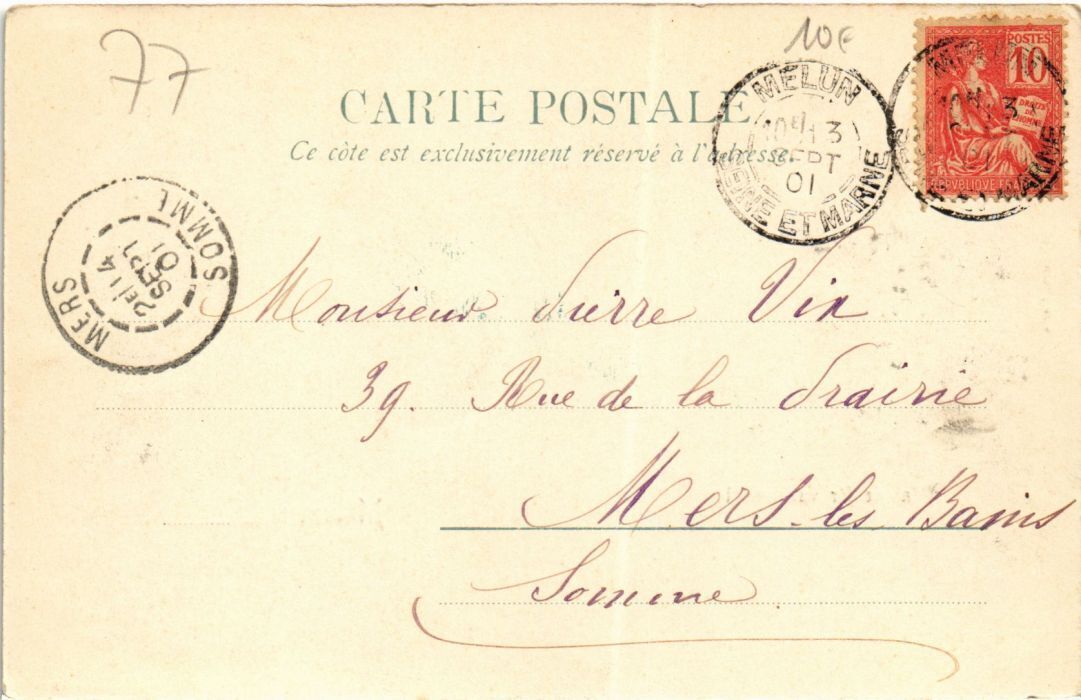 77
10€
CARTE POSTALE
Ce côté est exclusivement réservé à l'adresse.
POSTES
10
DROITS DE L'HOMME
REPVBLIQVE FRANÇAISE
MELUN
3
SEPT
01
SEINE ET MARNE
MERS
SOMME
4
SEPT
01
Monsieur Pierre Vix
39. Rue de la Prairie
Mers-les Bains
Somme